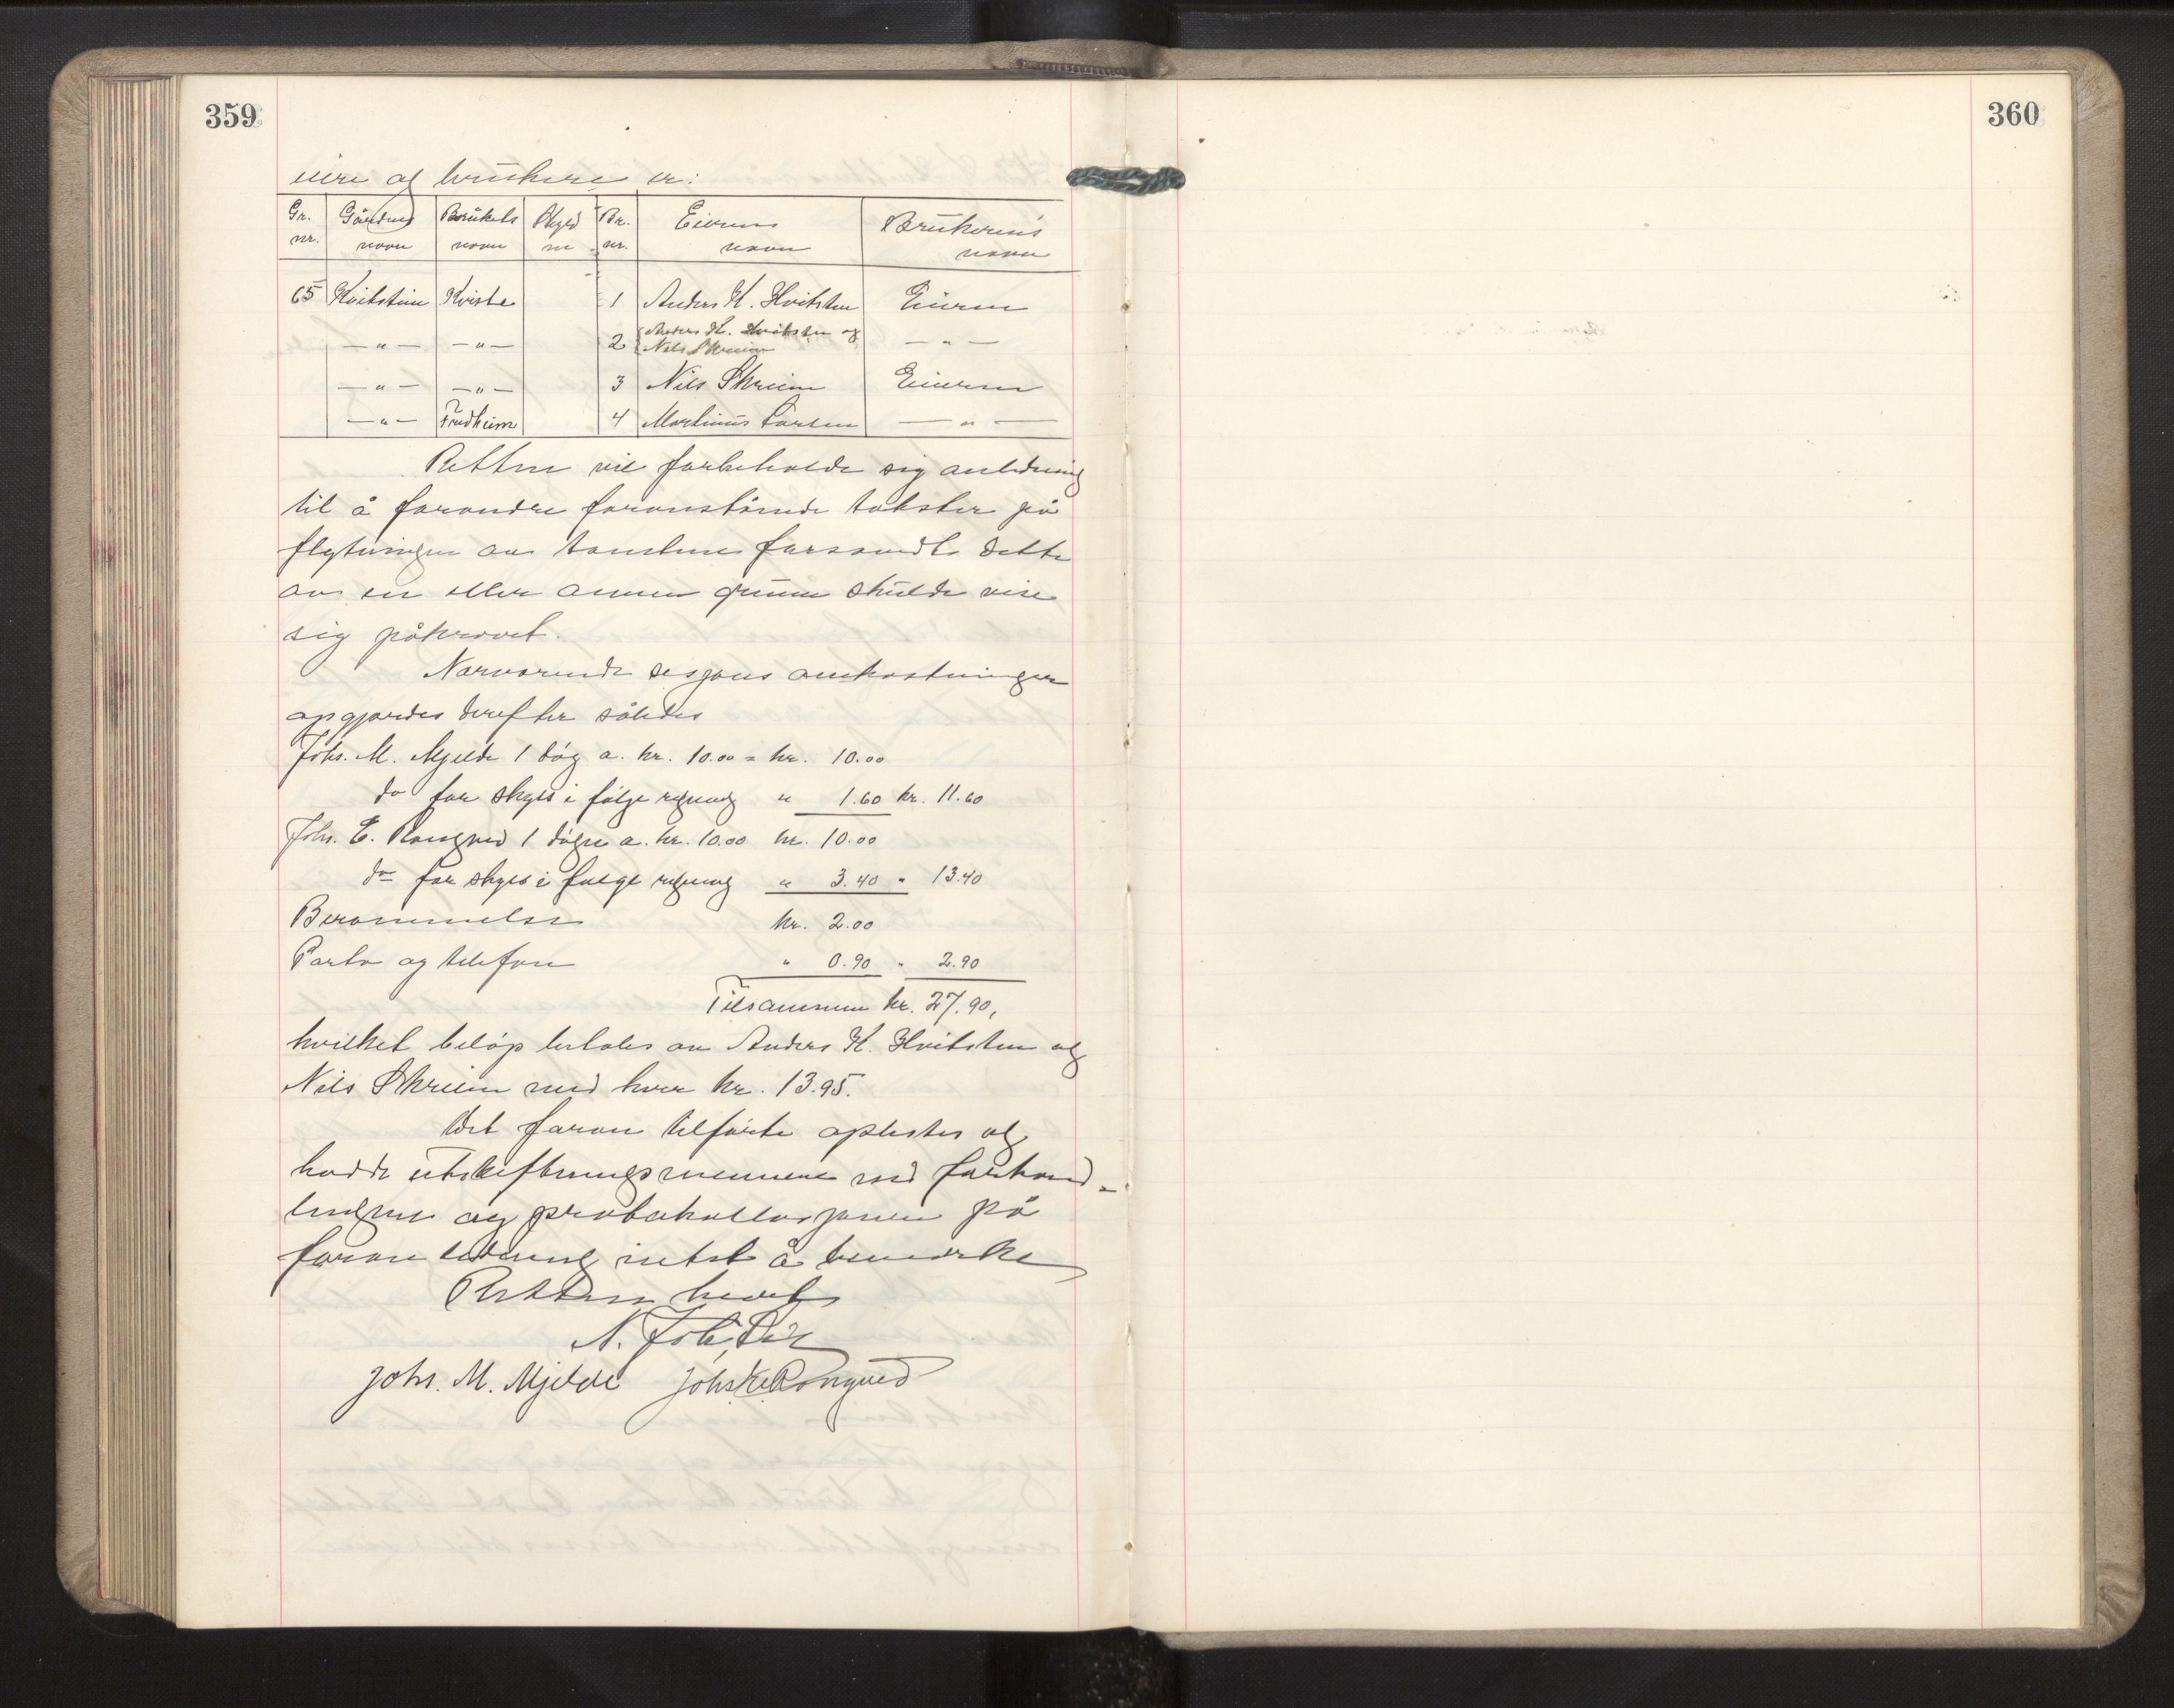 359
eiere og brukere er:
Gr. nr. | Gårdens navn | Brukets navn | Skyld m | Br. nr. | Eierens navn | Brukerens navn
65 | Hvitstein | Kviste | | 1 | Anders K. Hvitsten | Eieren
 | — " — | — " — | | 2 | Anders K. Hvitsten og Nils Skreien | — " —
 | — " — | — " — | | 3 | Nils Skreien | Eieren
 | — " — | Fredheim | | 4 | Martinus Larsen | — " —
Retten vil forbeholde sig anledning
til å forandre foranstående takster på
flytningen av tomtene forsåvidt dette
av en eller annen grunn skulde vise
sig påkrevet.
Nærværende sesjons omkostninger
opgjordes derefter således
Johs. M. Mjelde 1 døg a. kr. 10.00 = kr. 10.00
do for skyss i følge regning " 1.60 kr. 11.60
Johs. E. Rongved 1 døgn a. kr. 10.00 kr. 10.00
do for skyss i følge regning " 3.40 " 13.40
Berammelse kr. 2.00
Porto og telefon " 0.90 " 2.90
Tilsammen kr. 27.90,
hvilket beløp betales av Anders K. Hvitsten og
Nils Skreien med hver kr. 13.95.
Det foran tilførte oplestes og
hadde utskiftningsmennene ved forhand-
lingene og protokollasjonen på
foranledning intet å bemerke
Retten hevet
Johs. M. Mjelde Johs E Rongved
360